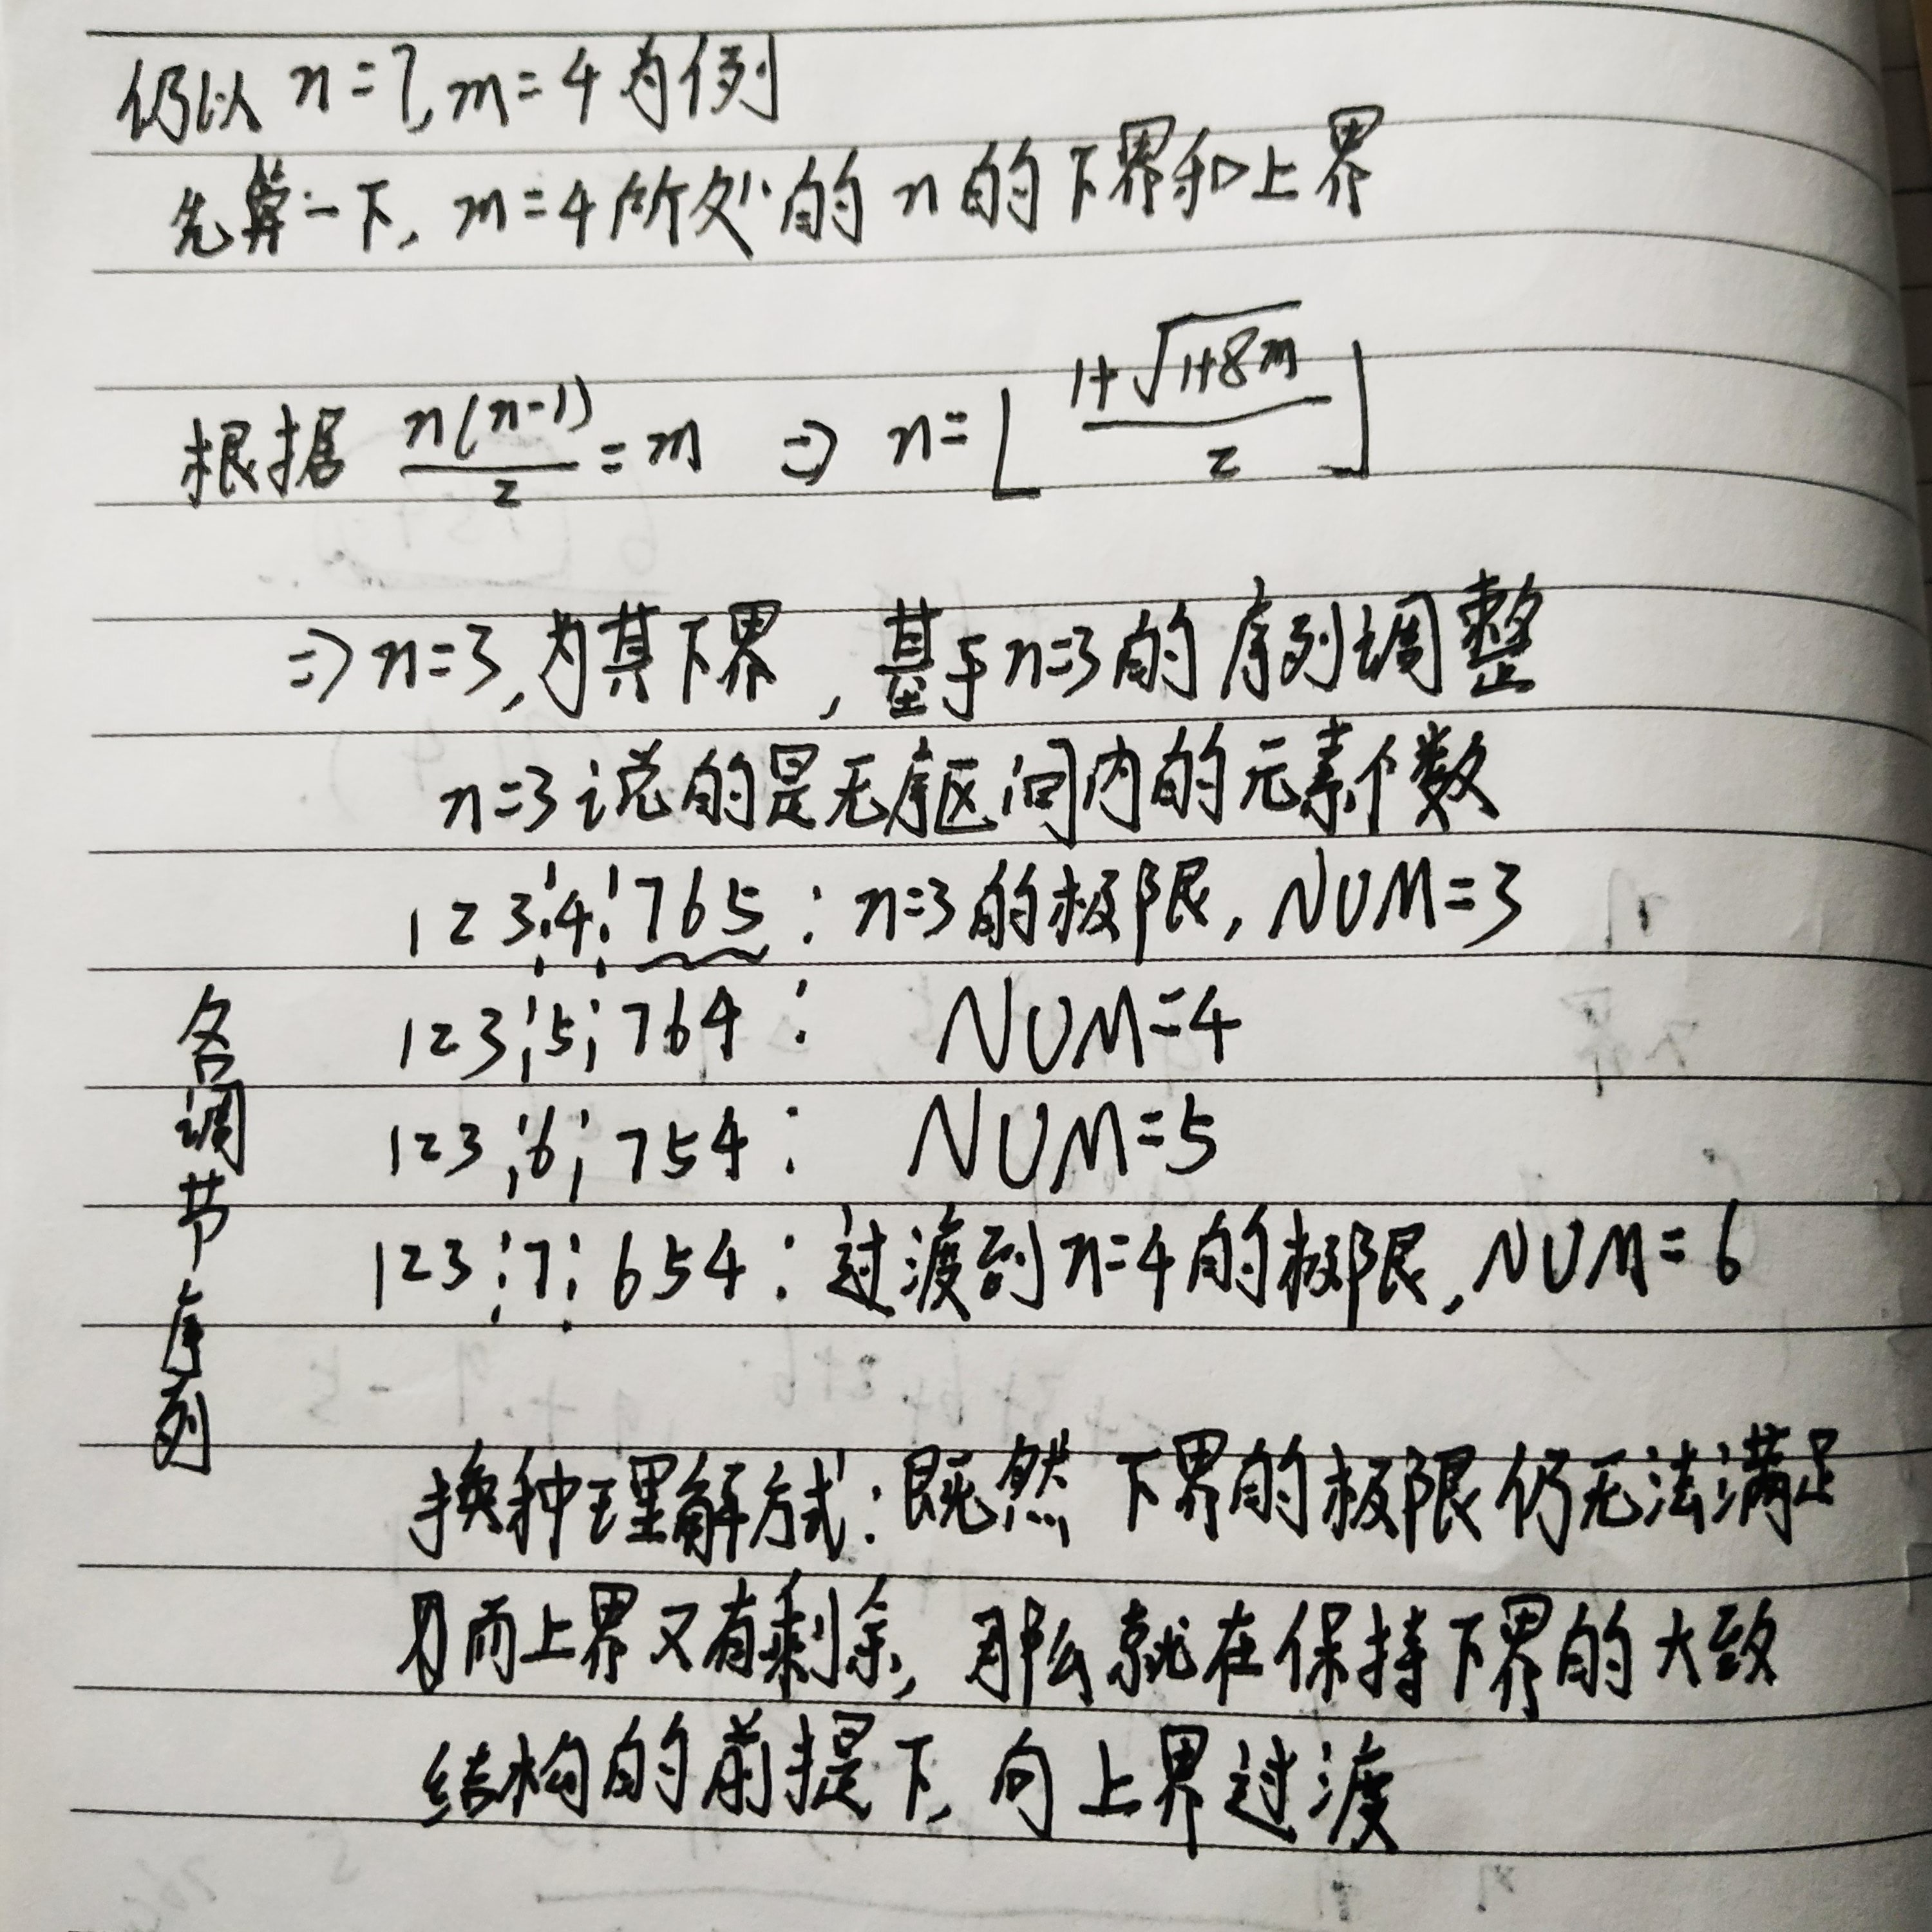 仍以 n=7, m=4为例
先算一下, m=4所处的n的下界和上界
根据 n(n-1)/2=m ⇒ n=⌊(1+√(1+8m))/2⌋
⇒n=3,为其下界,基于n=3的序列调整
n=3说的是无序区间内的元素个数
123¦4¦765:n=3的极限,NUM=3
123¦5¦764: NUM=4
123¦6¦754: NUM=5
123¦7¦654:过渡到n=4的极限,NUM=6
各调节序列
换种理解方式:既然下界的极限仍无法满足
而上界又有剩余,那么就在保持下界的大致
结构的前提下,向上界过渡